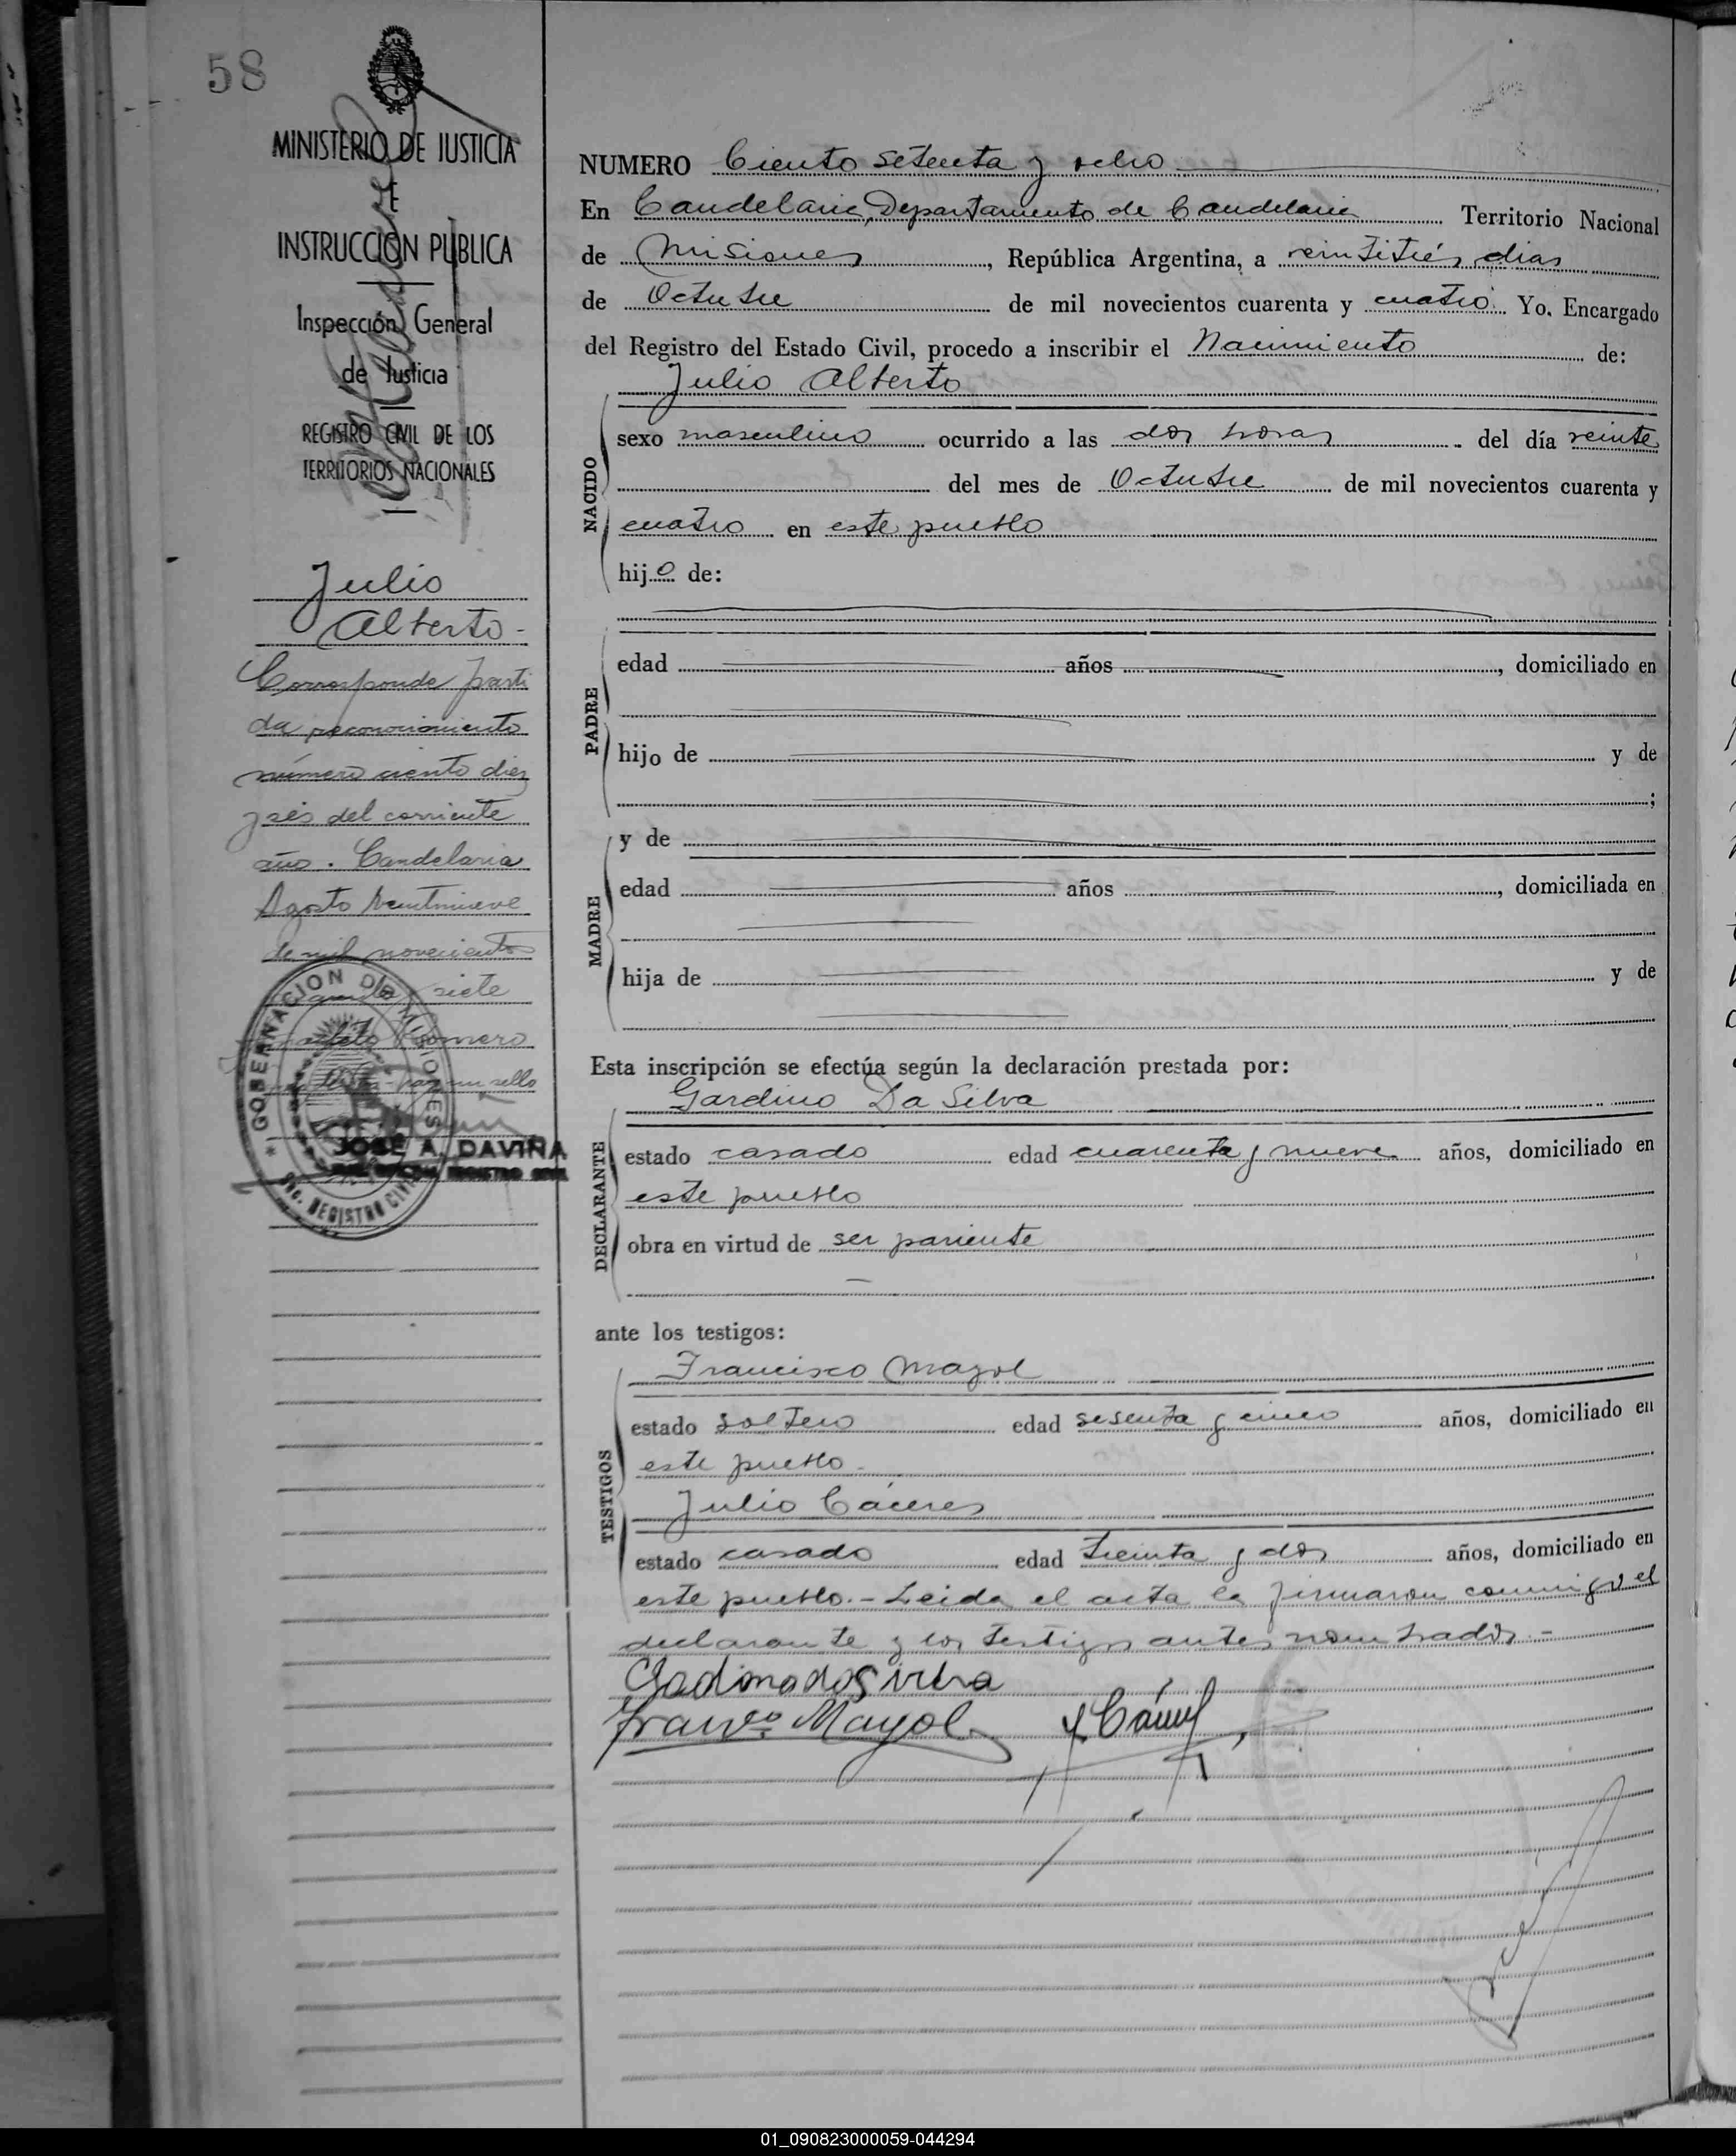 58
MINISTERIO DE JUSTICIA
E
INSTRUCCIÓN PÚBLICA
Inspección General
de Justicia
REGISTRO CIVIL DE LOS
TERRITORIOS NACIONALES
Julio
Alberto-
Corresponde parti
da reconocimiento
número ciento diez
y seis del corriente
año. Candelaria
Agosto veintinueve
de mil novecientos
siete
Romero
sello
GOBERNACION DE MISIONES
REGISTRO CIVIL
JOSÉ A. DAVIÑA
REGISTRO CIVIL
NUMERO Ciento setenta y ocho
En Candelaria, Departamento de Candelaria Territorio Nacional
de Misiones, República Argentina, a veintitrés dias
de Octubre de mil novecientos cuarenta y cuatro. Yo, Encargado
del Registro del Estado Civil, procedo a inscribir el Nacimiento de:
Julio Alberto
NACIDO
sexo masculino ocurrido a las dos horas del día veinte
del mes de Octubre de mil novecientos cuarenta y
cuatro en este pueblo
hijo de:
PADRE
edad años, domiciliado en
hijo de y de
;
y de
MADRE
edad años, domiciliada en
hija de y de
Esta inscripción se efectúa según la declaración prestada por:
Gardino Da Silva
DECLARANTE
estado casado edad cuarenta y nueve años, domiciliado en
este pueblo
obra en virtud de ser pariente
ante los testigos:
Francisco Mayol
TESTIGOS
estado soltero edad sesenta y cinco años, domiciliado en
este pueblo.
Julio Cáceres
estado casado edad treinta y dos años, domiciliado en
este pueblo.- Leida el acta la firmaron conmigo el
declarante y los testigos antes nombrados.-
Franco Mayol
01_090823000059-044294